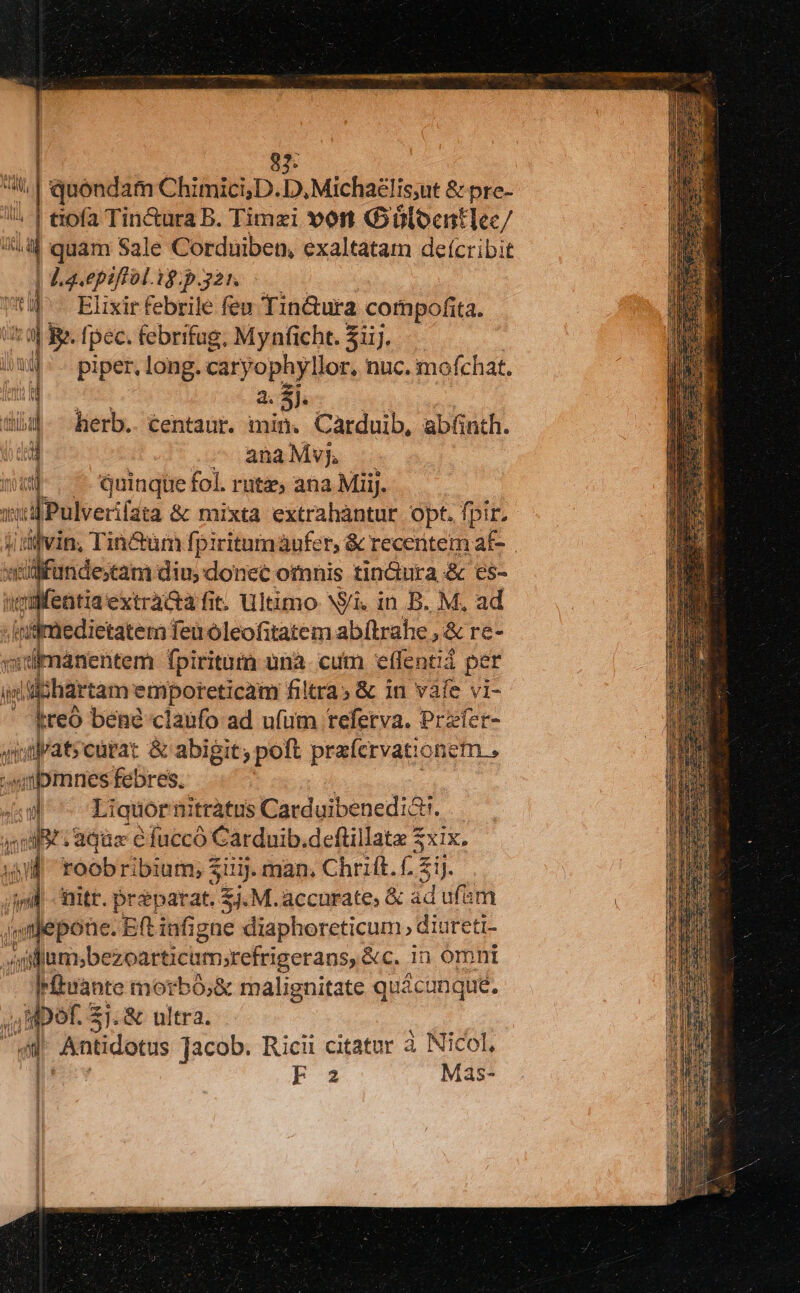 83.
quondam Chimici, D. D. Michaëlis, ut & pre-
tiosa Tinctura B. Timæi von Güldentlee/
quam Sale Corduiben, exaltatam describit
L.4. epistol. 18. p. 321.
Elixir febrile seu Tinctura composita.
℞. spec. febrifug. Mynsicht. ℥iij.
piper. long. caryophyllor. nuc. moschat.
a. ʒj.
herb. centaur. min. Carduib. absinth.
ana Mvj.
quinque fol. rutæ, ana Miij.
Pulverisata & mixta extrahantur opt. spir.
vin. Tinctum spiritum aufer, & recentem af-
funde, tam diu, donec omnis tinctura & es-
sentia extracta fit. Ultimo in B. M. ad
medietatem seu oleositatem abstrahe, & re-
manentem spiritum unà cum essentiâ per
chartam emporeticam filtra, & in vase vi-
treô benè clauso ad usum reserva. Præser-
vat, curat & abigit, post præservationem,
omnes febres.
Liquor nitratus Carduibenedicti.
℞. aquæ è succô Carduib. destillatæ ℥xix.
roob ribium, ℥iiij. man. Christ. f. ℥ij.
nitr. præparat. ℥j. M. accurate, & ad usum
repone. Est insigne diaphoreticum, diureti-
cum, bezoarticum, refrigerans, &c. in omni
æstuante morbô, & malignitate quâcunque.
Dos. ℥j. & ultra.
Antidotus Jacob. Ricii citatur à Nicol.
F 2 Mas-